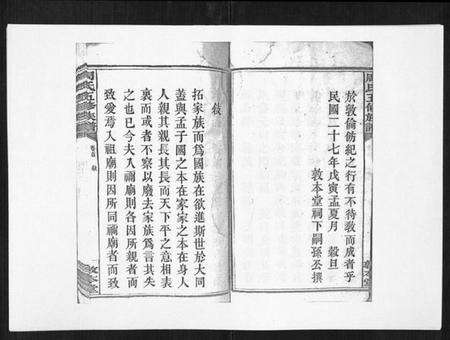 於敦倫飭紀之行有不待教而成者乎
民國二十七年戊寅孟夏月 穀旦
敦本堂祠下嗣孫丕撰
周氏五修族譜
敘
拓家族而為國族在欲進斯世於大同
蓋與孟子國之本在家家之本在身人
人親其親長其長而天下平之意相表
裏而或者不察以廢去家族為言其失
之也已今夫入禰廟則各因所親者而
致愛焉入祖廟則因所同禰廟者而致
周氏五修族譜
卷首 敘
敦本堂